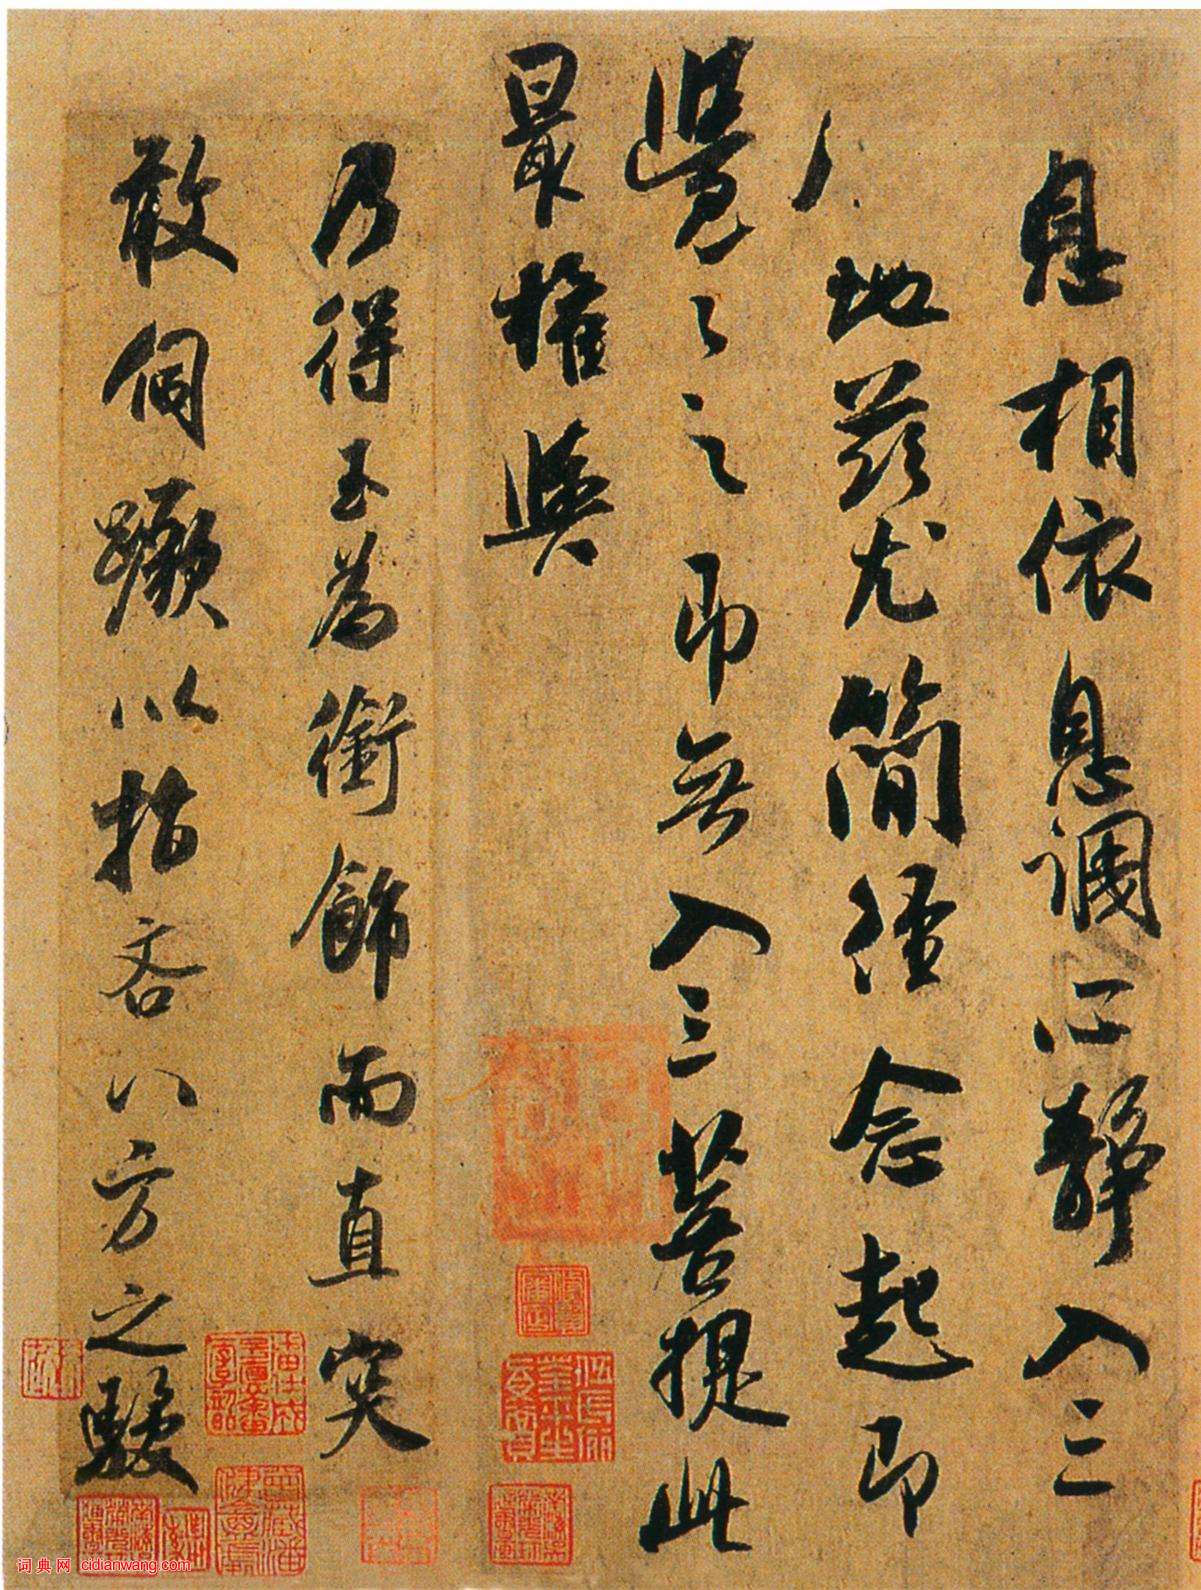 息相依息調心靜入三
地茲尤簡徑念起即
覺〻之即無入三菩提此
最權輿
乃得玉為銜飾而直突
敢伺蹶以指吝八方之駿
词典网 cidianwang.com